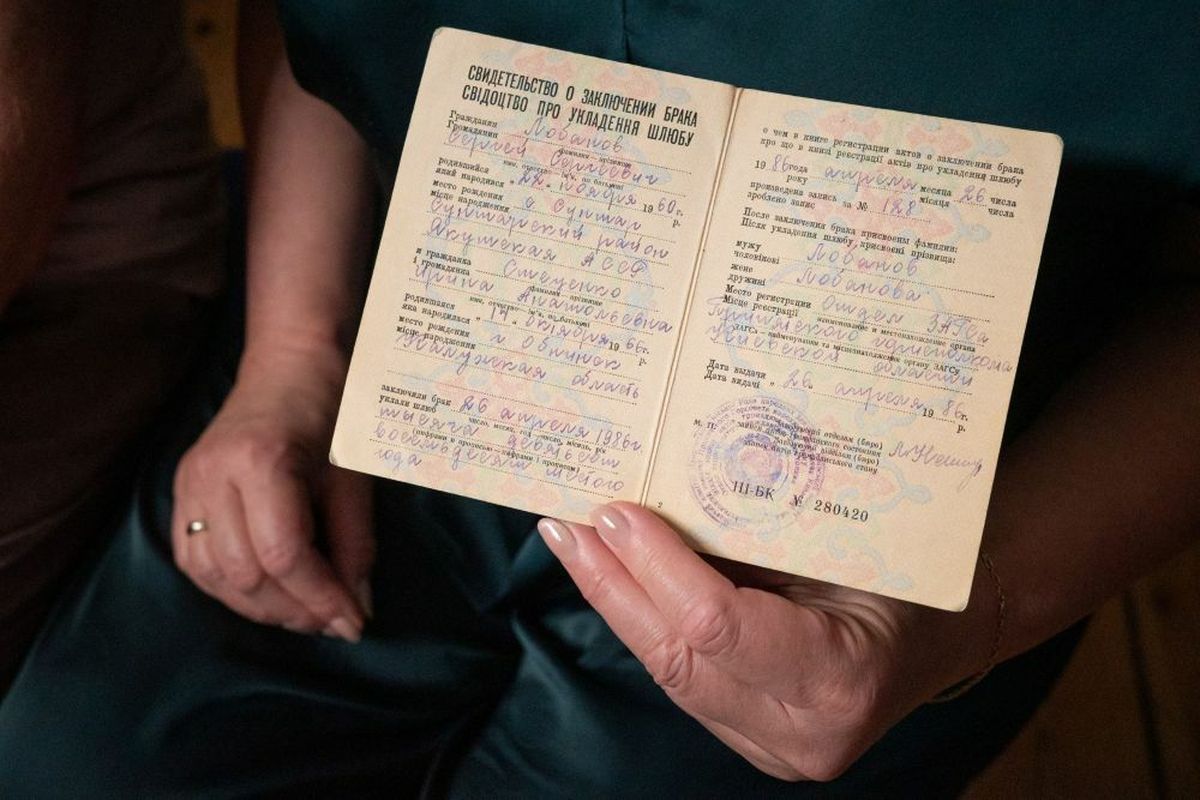 СВИДЕТЕЛЬСТВО О ЗАКЛЮЧЕНИИ БРАКА
СВІДОЦТВО ПРО УКЛАДЕННЯ ШЛЮБУ
Гражданин
Громадянин Лобанов
фамилия — прізвище
Сергей Сергеевич
имя, отчество — ім'я, по батькові
родившийся
який народився „22“ ноября 1960 г.
р.
место рождения
місце народження с Сунтар
Сунтарский район
Якутская АССР
и гражданка
і громадянка Стеценко
фамилия — прізвище
Ирина Анатольевна
имя, отчество — ім'я, по батькові
родившаяся
яка народилась „14“ октября 1966 г.
р.
место рождения
місце народження г Обнинск
Калужская область
заключили брак
уклали шлюб 26 апреля 1986 г
число, месяц, год — число, місяць, рік
тысяча девятьсот
(цифрами и прописью — цифрами і прописом)
восемьдесят шестого
года
2
о чем в книге регистрации актов о заключении брака
про що в книзі реєстрації актів про укладення шлюбу
1986 года апреля месяца 26 числа
року місяця числа
произведена запись за №
зроблено запис 128
После заключения брака присвоены фамилии:
Після укладення шлюбу присвоєні прізвища:
мужу
чоловікові Лобанов
жене
дружині Лобанова
Место регистрации
Місце реєстрації Отдел ЗАГСа
наименование и местонахождение органа
горисполкома
ЗАГСа — найменування та місцезнаходження органу ЗАГСу
Киевской области
Дата выдачи
Дата видачі „26“ апреля 1986 г.
р.
М. П.
III-БК № 280420